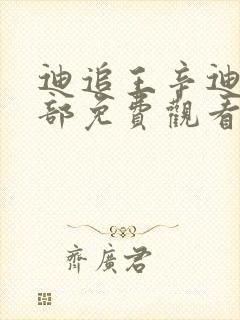 迪追王辛迪
部免費觀看
齊廣君